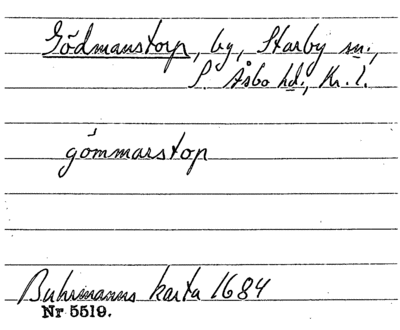 Gödmanstorp, by, Starby sn.,
S. Åsbo hd., Kr. l.
gömmarstop
Buhrmanns karta 1684
Nr 5519.